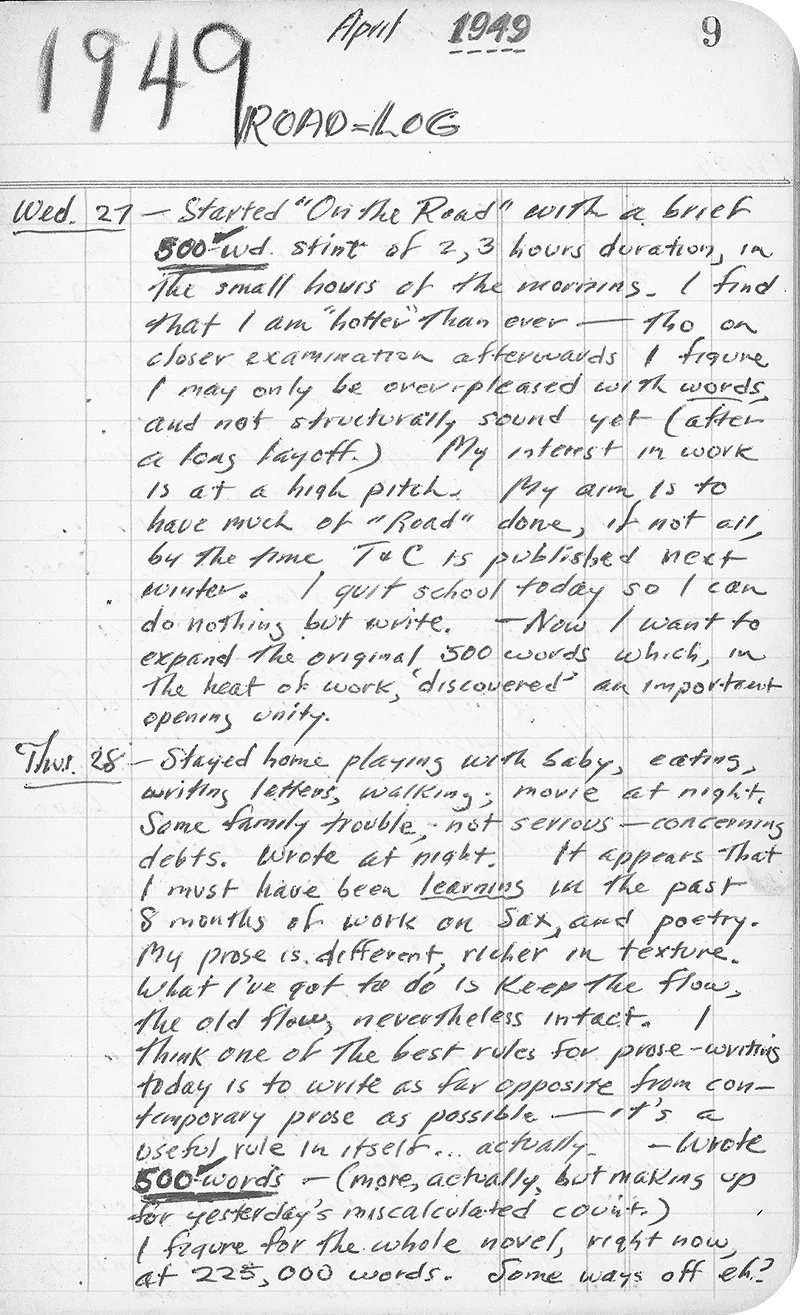 April 1949 9
1949
ROAD=LOG
Wed. 27 — Started "On the Road" with a brief
500-wd. stint of 2, 3 hours duration, in
the small hours of the morning. I find
that I am "hotter" than ever — tho on
closer examination afterwards I figure
I may only be over-pleased with words,
and not structurally sound yet (after
a long layoff.) My interest in work
is at a high pitch. My aim is to
have much of "Road" done, if not all,
by the time T&C is published next
winter. I quit school today so I can
do nothing but write. — Now I want to
expand the original 500 words which, in
the heat of work, 'discovered' an important
opening unity.
Thur. 28 — Stayed home playing with baby, eating,
writing letters, walking; movie at night.
Some family trouble, not serious — concerning
debts. Wrote at night. It appears that
I must have been learning in the past
8 months of work on Sax, and poetry.
My prose is different, richer in texture.
What I've got to do is keep the flow,
the old flow, nevertheless intact. I
think one of the best rules for prose-writing
today is to write as far opposite from con-
temporary prose as possible — it's a
useful rule in itself... actually. — Wrote
500-words — (more, actually, but making up
for yesterday's miscalculated count.)
I figure for the whole novel, right now,
at 225,000 words. Some ways off eh?